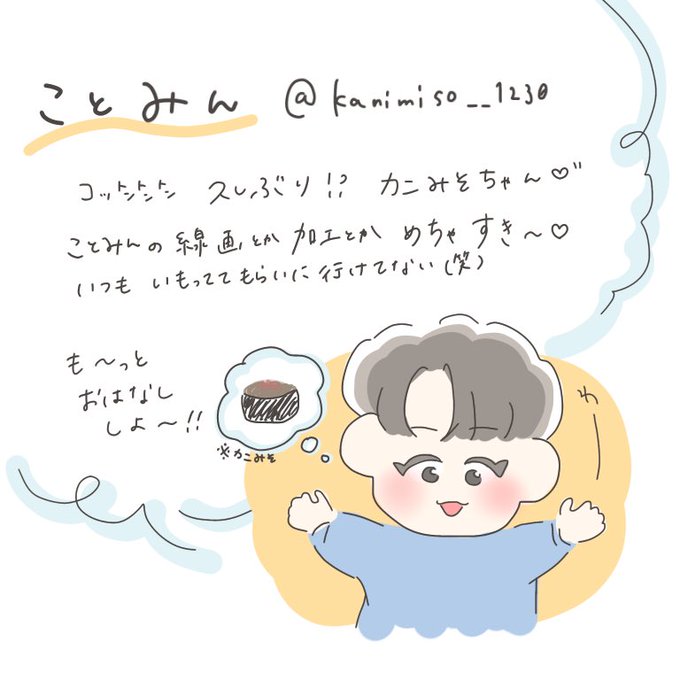 ことみん @kanimiso__1230
コットントントン 久しぶり!? カニみそちゃん♡
ことみんの線画とか加工とか めちゃすき〜♡
いつも いもっててもらいに行けてない(笑)
も〜っと
おはなし
しよ〜!!
※カニみそ
わー